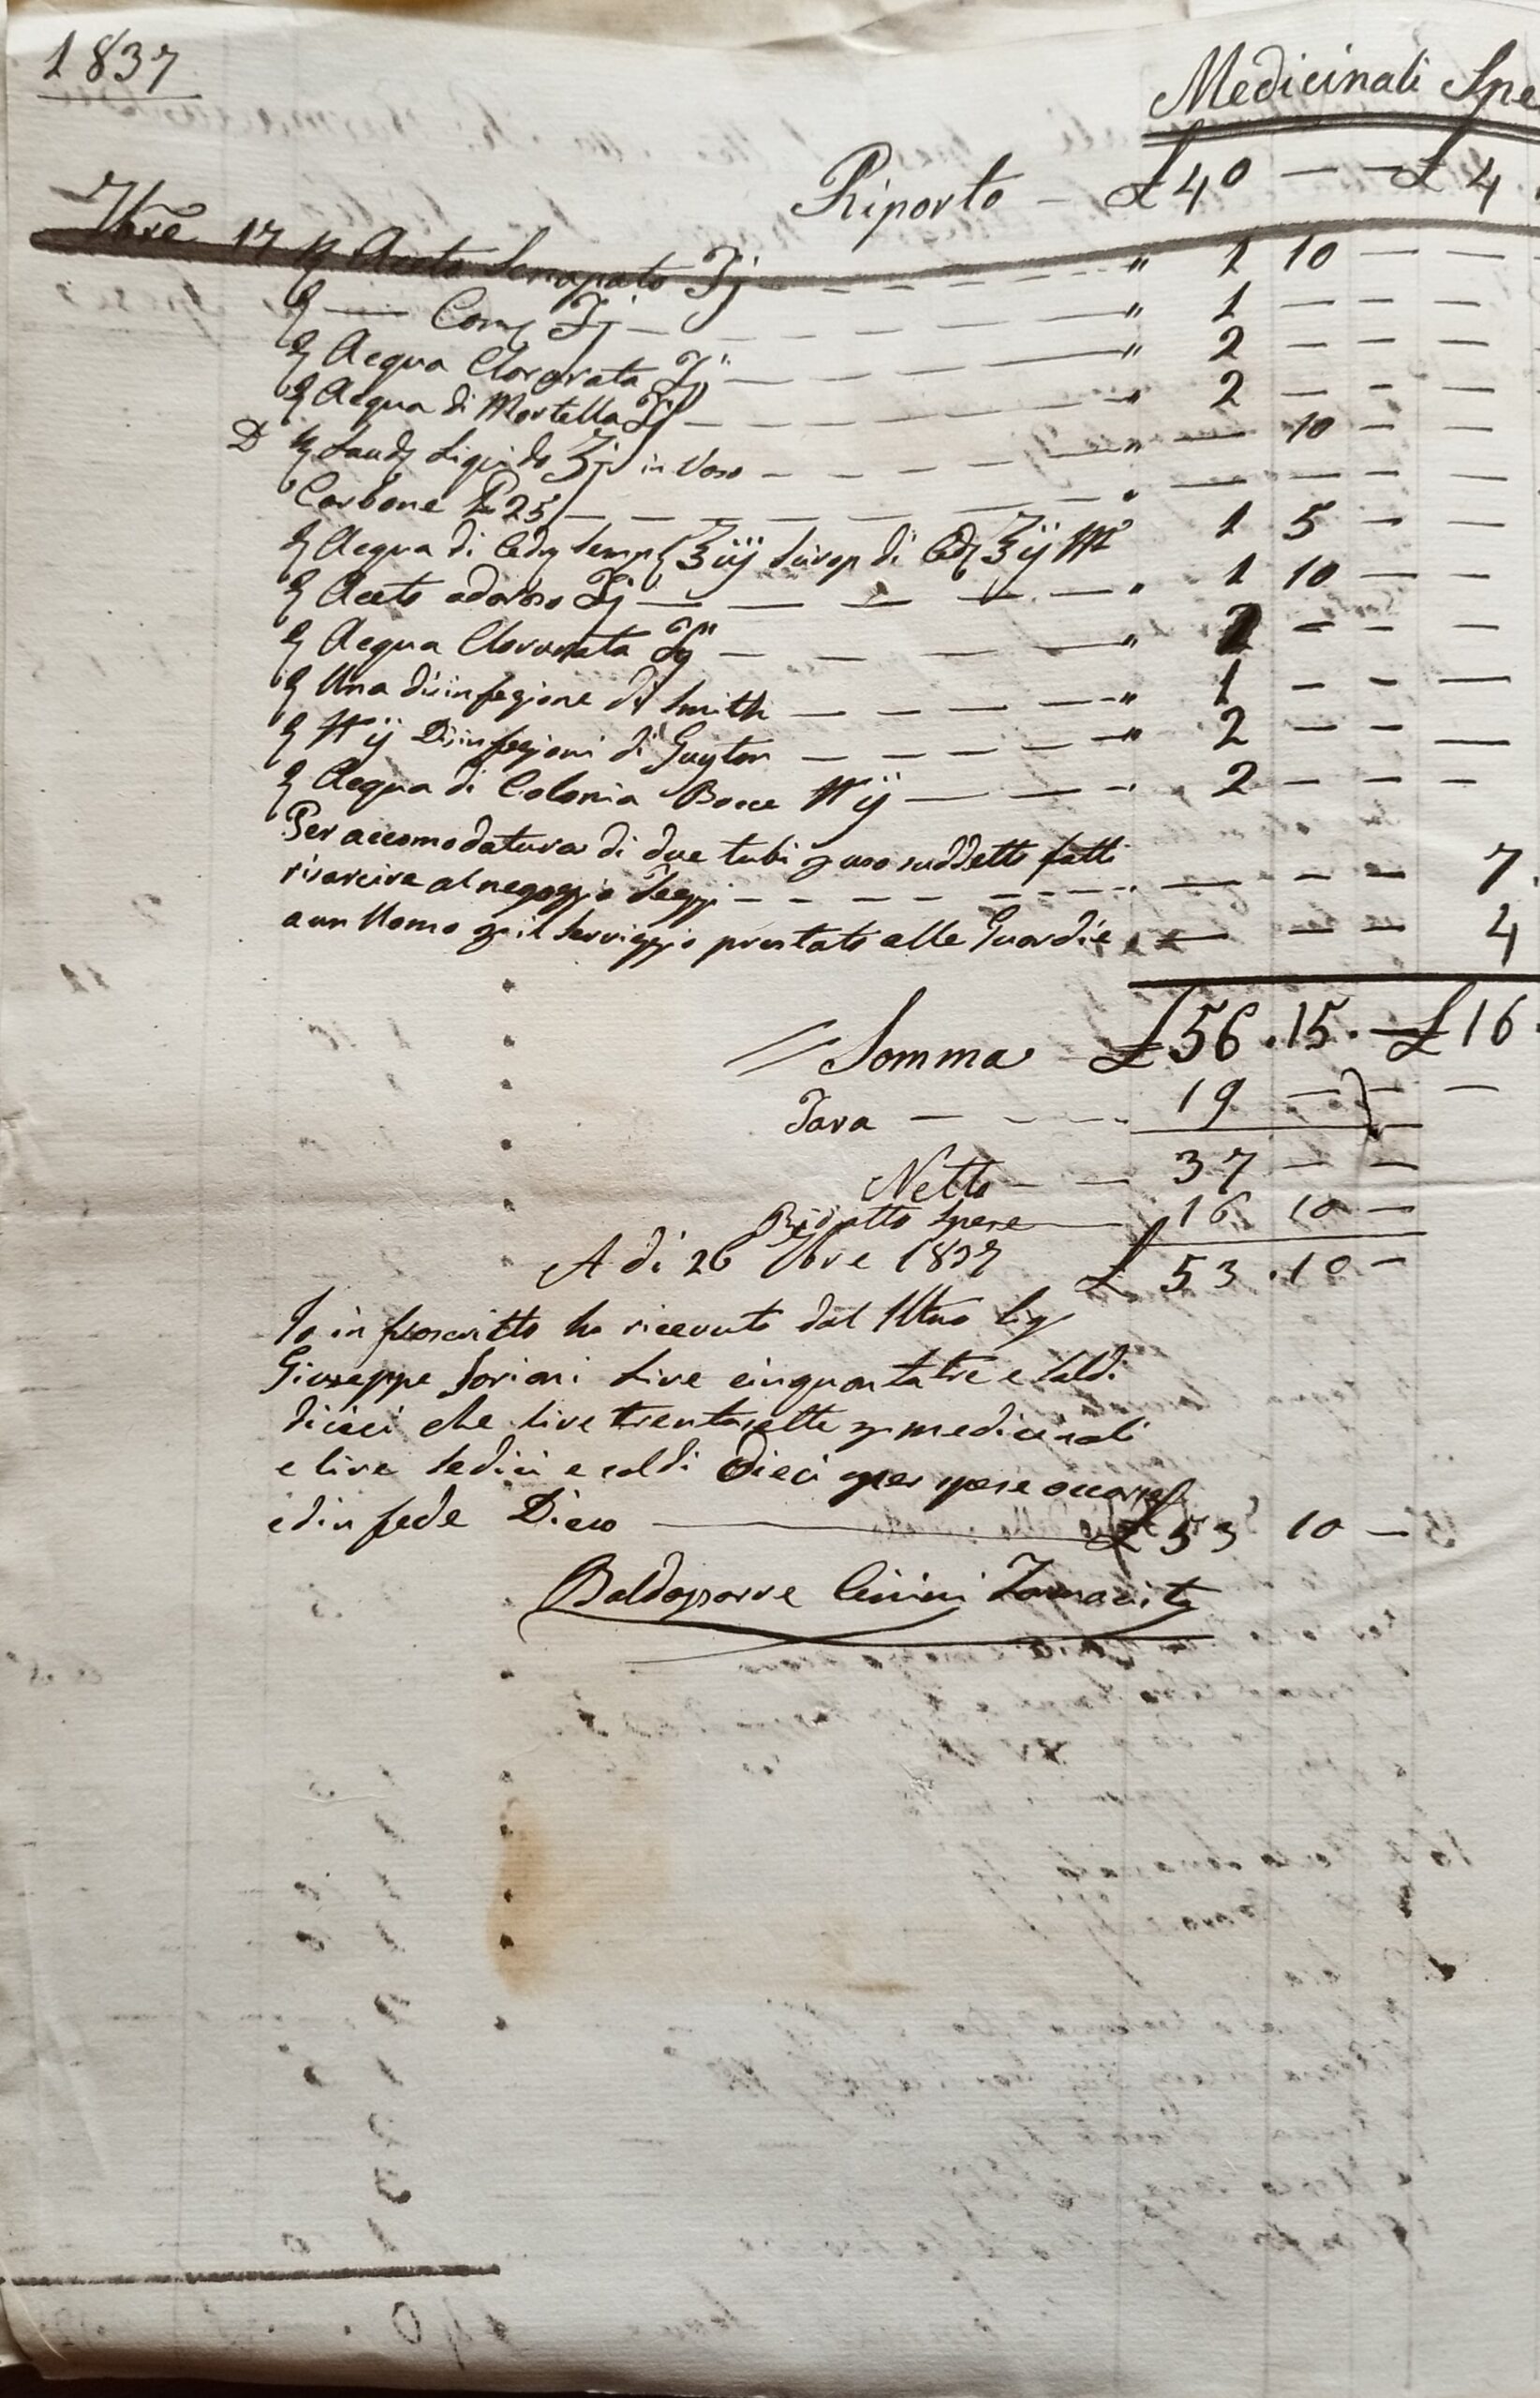 1837
Medicinali Spe
Riporto — £ 40 — — £ 4
7bre 17 Aceto
— Comͤ — — — — " 1 — — —
Acqua Clorurata — — — " 2 — — —
Acqua di Mortella — — — " 2 — — —
D Laudͦ Liquido ʒj in Vaso — — — " — 10 — —
Carbone 25 — — — — — — — —
Acqua di Cedͦ Sempͤ ʒiij Sirop di Cedͦ ʒij Mͣ 1 5 — —
Aceto odoroso — — — — — " 1 10 — —
Acqua Clorurata — — — — " 2 — — —
Una disinfezione di Smith — — — — " 1 — — —
N ij Disinfezioni di Guyton — — — — " 2 — — —
Acqua di Colonia Bocce N ij — — — " 2 — — —
Per accomodatura di due tubi p uso suddetto fatti
risarcire al negozio — — — — — — — — — 7
a un Uomo p il Servizzio prestato alle Guardie — — — 4
// Somma £ 56 . 15 . — £ 16 .
Tara — — — 19 — — —
Netto — — 37 — —
Spese — 16 10 —
A di 26 7bre 1837 £ 53 . 10 —
Io infrascritto ho ricevuto dal Illmo Sigͬ
Giuseppe Soriani Lire cinquantatre e Soldi
dieci che lire trentasette p medicinali
e lire Sedici e soldi Dieci per spese
ed in fede Dico — £ 53 10 —
Baldassarre Cinini